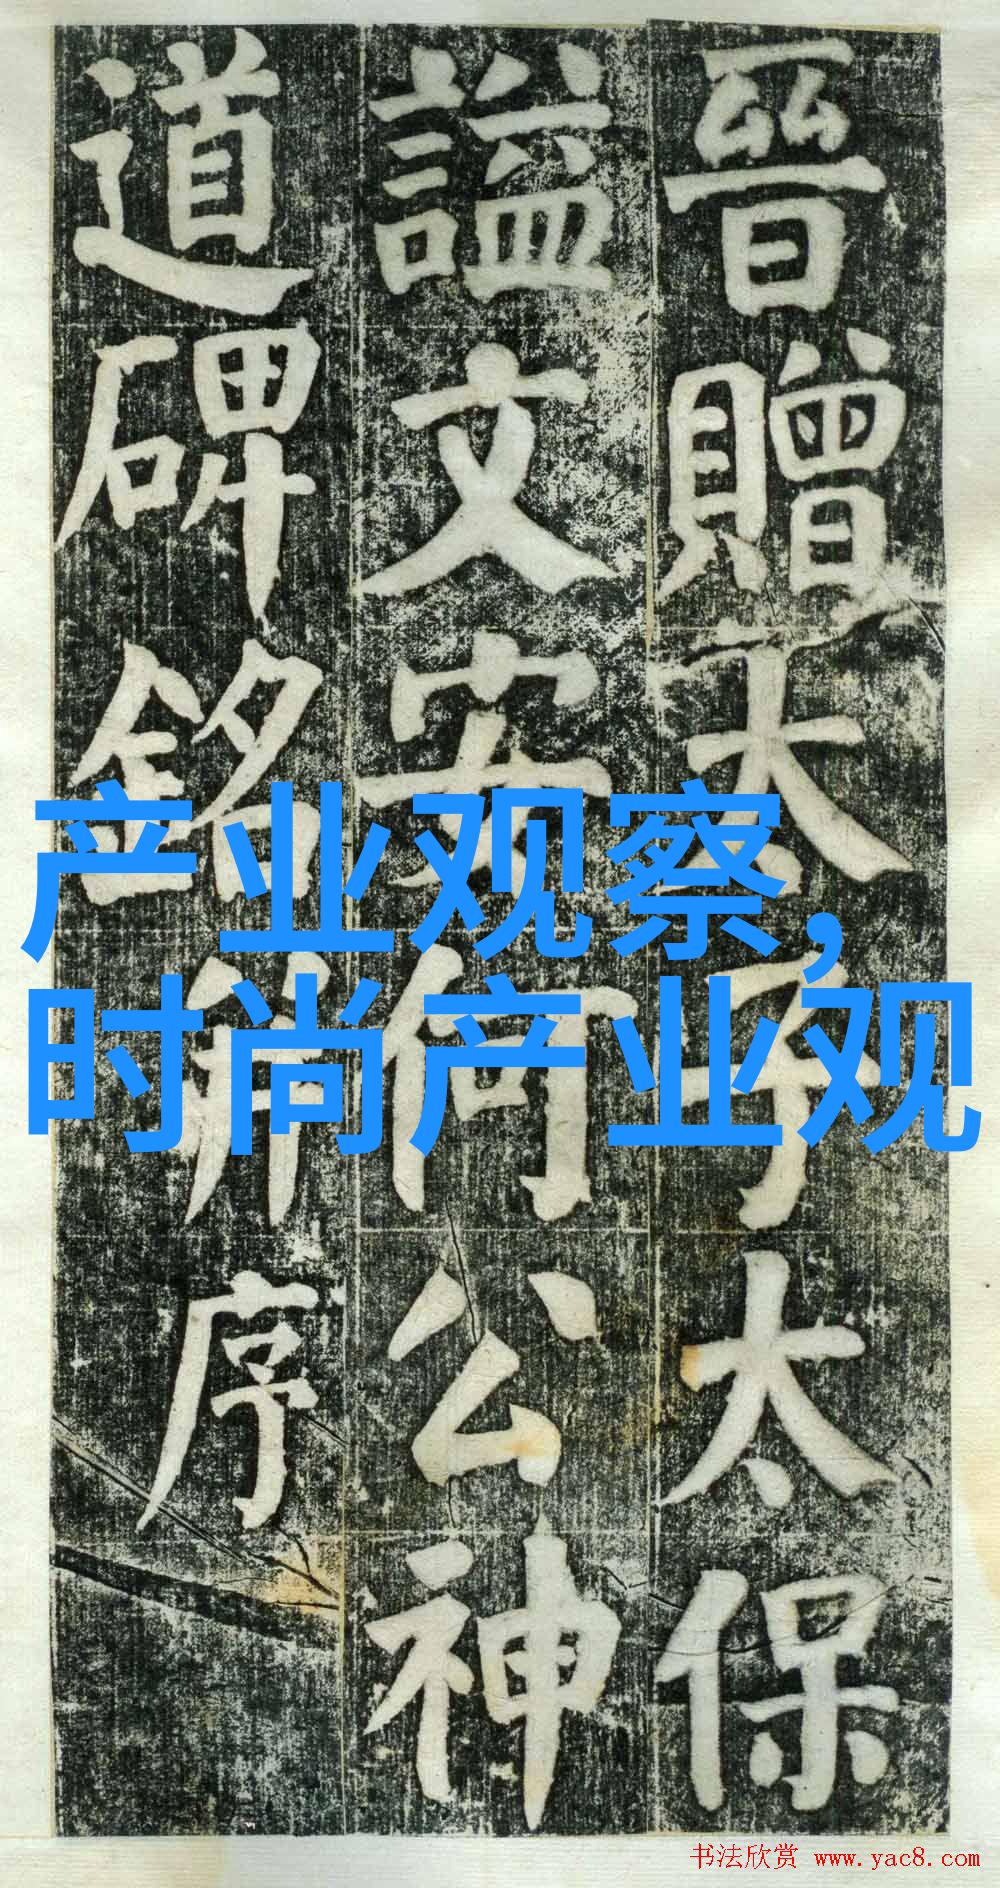 晉贈太子太保
謚文安何公神
道碑銘并序
产业观察，
时尚产业观
书法欣赏 www.yac8.com